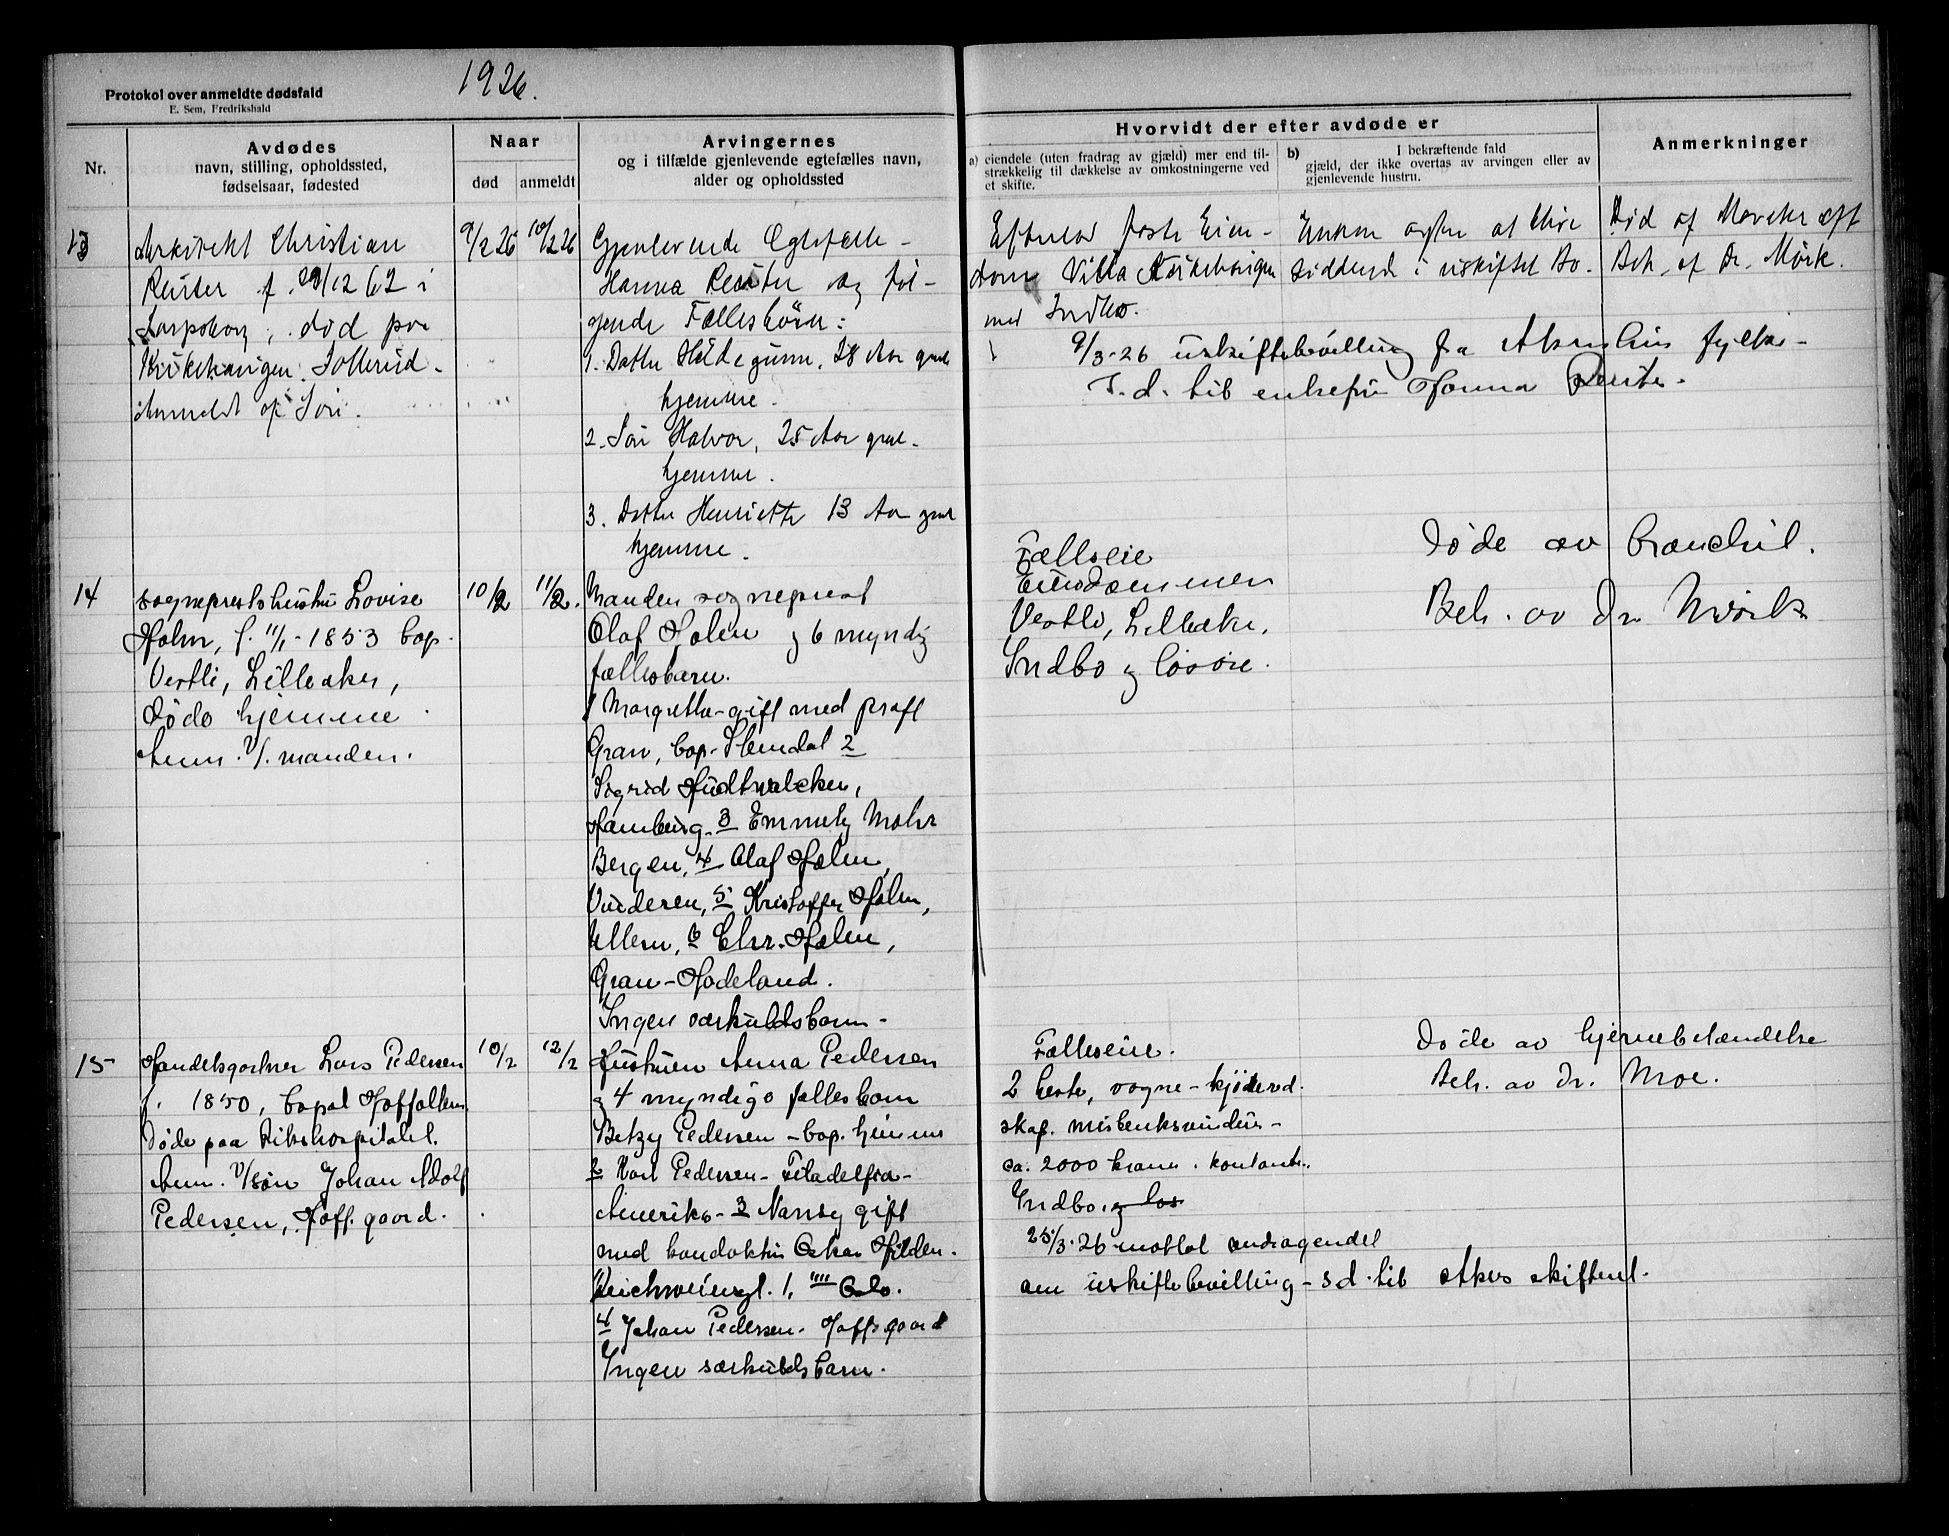 1926.
Protokol over anmeldte dødsfald
E. Sem, Fredrikshald
Nr.
Avdødes
navn, stilling, opholdssted,
fødselsaar, fødested
Naar
død
anmeldt
Arvingernes
og i tilfælde gjenlevende egtefælles navn,
alder og opholdssted
Hvorvidt der efter avdøde er
a) eiendele (uten fradrag av gjæld) mer end til-
strækkelig til dækkelse av omkostningerne ved
et skifte.
b) I bekræftende fald
gjæld, der ikke overtas av arvingen eller av
gjenlevende hustru.
Anmerkninger
13
Arkitekt Christian
Reuter f. 29/12 62 i
Sarpsborg, død paa
Kirkehaugen. Sollerud.
Anmeldt af Søn.
9/2 26
10/2 26
Gjenlevende Egtefælle -
Hanna Reuter og føl-
gende Fællesbörn:
1. Datter Hildegunn, 28 Aar gml
hjemme.
2. Søn Halvor, 25 Aar gml.
hjemme.
3. Datter Henriette 13 Aar gml
hjemme.
Efterlod faste Eien-
dom Villa Kirkehaugen
med Indbo.
Enken agter at blive
siddende i uskiftet Bo.
Død af
Beh. af Dr. Mörk.
9/3-26 uskiftebevilling fra Akershus fylke -
S. d. til enkefru Hanna Reuter.
14
Sogneprestshustru Lovise
Holm, f. 11/1-1853 bop.
Vestli, Lilleaker,
Døde hjemme
Anm. v/. manden.
10/2
11/2.
Manden sogneprest
Olaf Holm og 6 myndig
fællesbarn.
1 Margrethe - gift med prof
Gran, bop. Slemdal 2
Sigrid Hudtwalcker,
Hamburg. 3 Emmely Mohr
Bergen, 4 Olaf Holm,
Vinderen, 5 Kristoffer Holm,
Ullern, 6 Chr. Holm,
Gran - Hadeland.
Ingen særkuldsbarn -
Fælleseie
Eiendommen
Vestli, Lilleaker,
Indbo og løsøre.
Døde av
Beh. av Dr. Mörk
15
Handelsgartner Lars Pedersen
f. 1850, bopæl
Døde paa Rikshospitalet.
Anm. v/søn Johan Adolf
Pedersen, Hoffsgaard.
10/2
12/2
Hustruen Anna Pedersen
og 4 myndige fællesbarn
Betzy Pedersen - bop. hjemme
2 Karl Pedersen - Filadelfia -
Amerika - 3 Nansy gift
med konduktør Oskar Hilden.
1, Oslo.
4 Johan Pedersen - Hoffsgaard
Ingen særkuldsbarn.
Fælleseie.
2 heste, vogne - kjørered-
skap. mistbenksvinduer -
ca. 2000 kroner. kontanter.
Indbo. og løs
25/3-26 mottat andragendet
om uskiftebevilling - s d. til Akers skifteret.
Døde av hjernebetændelse
Beh. av Dr. Moe.